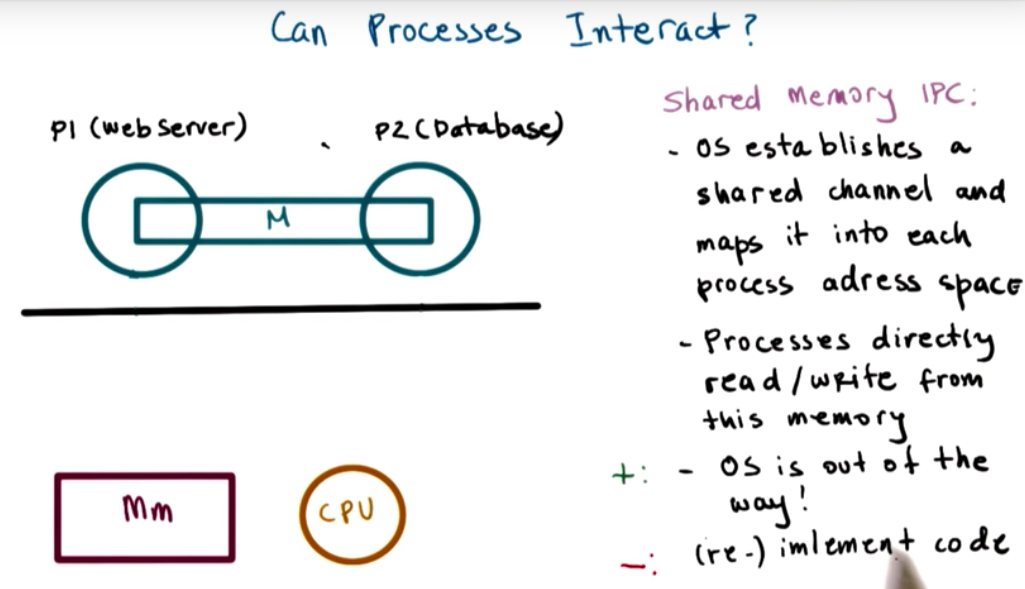 Can Processes Interact?
P1 (web Server)
P2 (Database)
M
Mm
CPU
Shared Memory IPC:
- OS establishes a
shared channel and
maps it into each
process adress space
- Processes directly
read/write from
this memory
+: - OS is out of the
way!
-: (re-) imlement code